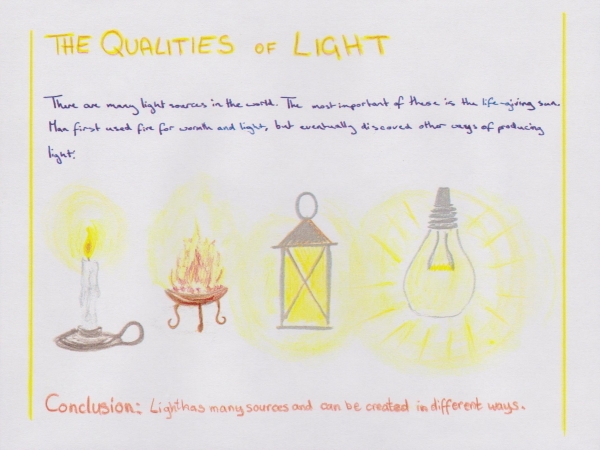 THE QUALITIES OF LIGHT
There are many light sources in the world. The most important of these is the life-giving sun.
Man first used fire for warmth and light, but eventually discoved other ways of producing
light.
Conclusion: Light has many sources and can be created in different ways.